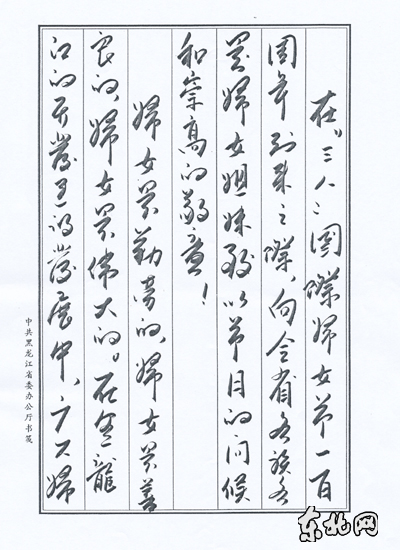 在“三八”國際婦女节一百
周年到来之際，向全省各族各
界婦女姐妹致以节日的问候
和崇高的敬意！
婦女是勤劳的，婦女是善
良的，婦女是伟大的。在黑龍
江的开發建设發展中，广大婦
中共黑龙江省委办公厅书笺
东北网